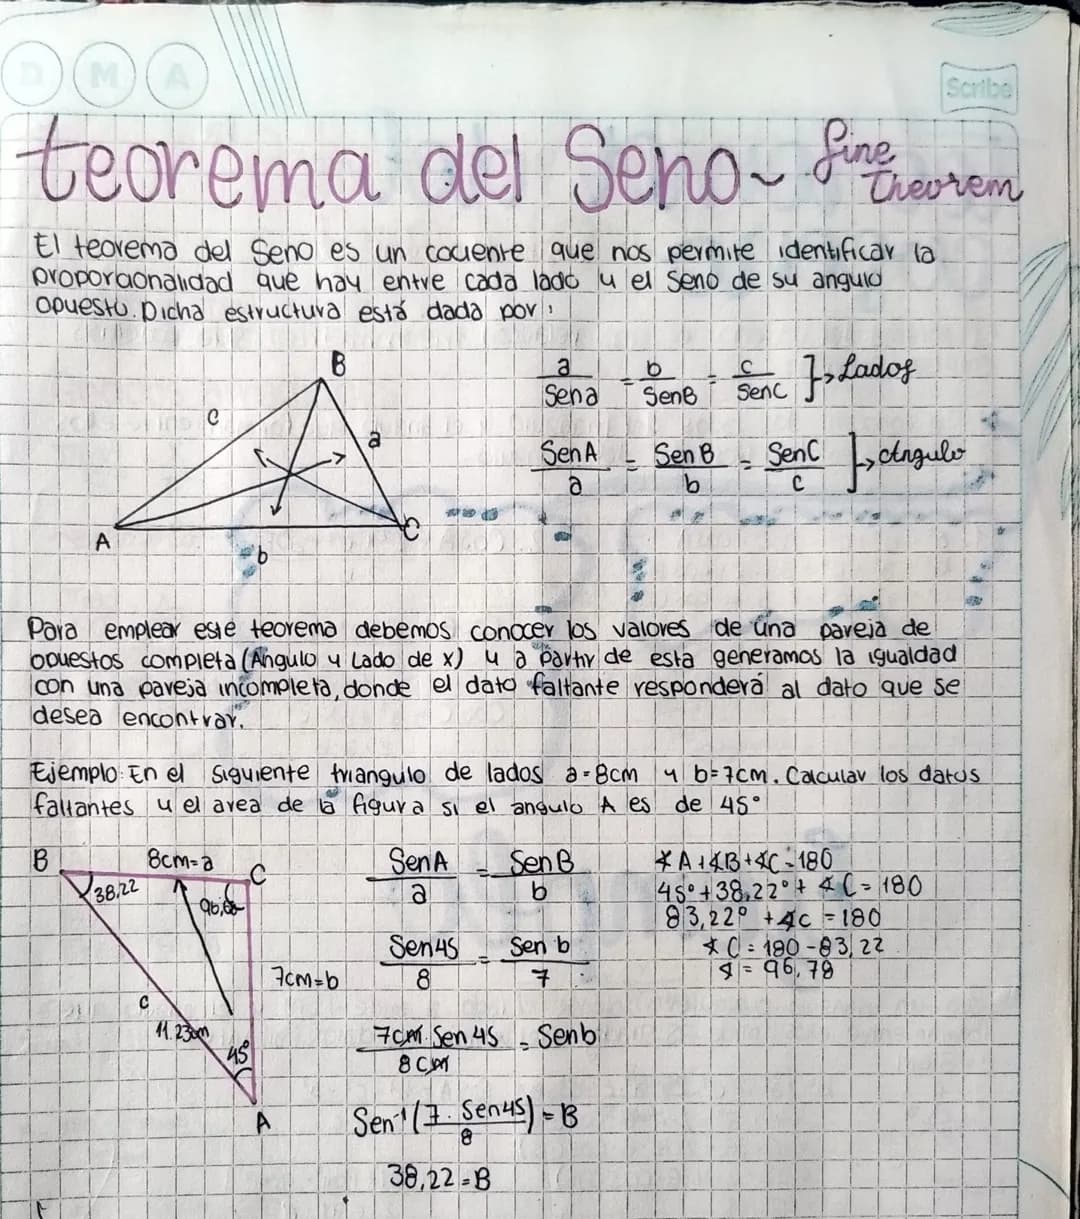 D M A
Scribe
teorema del Seno~ Sine
theorem
El teorema del Seno es un cociente que nos permite identificar la
proporcionalidad que hay entre cada lado y el Seno de su angulo
opuesto. Dicha estructura está dada por:
B
c
a
A
C
b
a/Sena = b/SenB = c/SenC }→ Lados
SenA/a = SenB/b = SenC/c ]→ Angulo
Para emplear este teorema debemos conocer los valores de una pareja de
opuestos completa (Angulo y Lado de x) y a partir de esta generamos la igualdad
con una pareja incompleta, donde el dato faltante responderá al dato que se
desea encontrar.
Ejemplo: En el siguiente triangulo de lados a=8cm y b=7cm. Calcular los datos
faltantes y el area de la figura si el angulo A es de 45°
B
8cm=a
C
38,22
7cm=b
c
11.23cm
45°
A
SenA/a = SenB/b
Sen45/8 = Sen b/7
7cm. Sen45/8cm = Senb
Sen⁻¹(7. Sen45/8) = B
38,22=B
∡A+∡B+∡C=180
45°+38,22°+ ∡C= 180
83,22° +∡C =180
∡C = 180-83,22
∡= 96,78